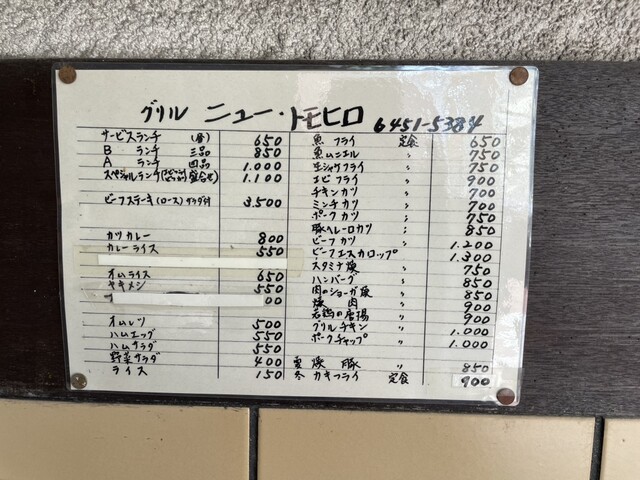 グリル ニュー・トモヒロ 6451-5384
サービスランチ (昼) 650
B ランチ 三品 850
A ランチ 四品 1.000
スペシャルランチ 盛合せ 1.100
ビーフステーキ(ロース)サラダ付 3.500
カツカレー 800
カレーライス 550
オムライス 650
ヤキメシ 550
00
オムレツ 500
ハムエッグ 550
ハムサラダ 550
野菜サラダ 400
ライス 150
魚フライ 定食 650
魚ムニエル 〃 750
生ジャケフライ 〃 750
エビフライ 〃 900
チキンカツ 〃 700
ミンチカツ 〃 700
ポークカツ 〃 750
豚ヘレーロカツ 〃 850
ビーフカツ 〃 1.200
ビーフエスカロップ 〃 1.300
スタミナ焼 〃 750
ハンバーグ 〃 850
肉のショーガ焼 〃 850
焼肉 〃 900
若鶏の唐揚 〃 900
グリルチキン 〃 1.000
ポークチャップ 〃 1.000
夏 焼豚 〃 850
冬 カキフライ 定食 900